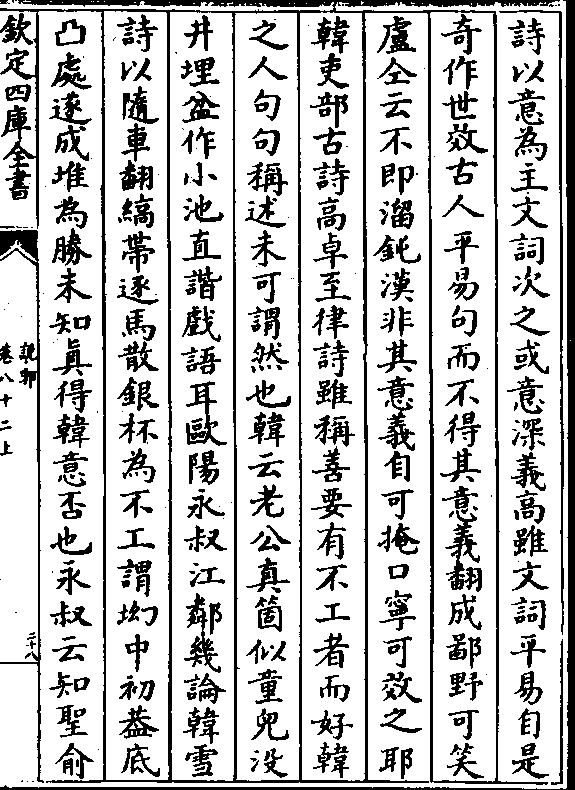 詩以意為主文詞次之或意深義高雖文詞平易自是
奇作世效古人平易句而不得其意義翻成鄙野可笑
盧仝云不即溜鈍漢非其意義自可掩口寧可效之耶
韓吏部古詩高卓至律詩雖稱善要有不工者而好韓
之人句句稱述未可謂然也韓云老公真箇似童兒没
井埋盆作小池直諧戲語耳歐陽永叔江鄰幾論韓雪
詩以隨車翻縞帶逐馬散銀杯為不工謂坳中初葢底
凸處遂成堆為勝未知真得韓意否也永叔云知聖俞
欽定四庫全書
說郛
卷八十二上
二十八